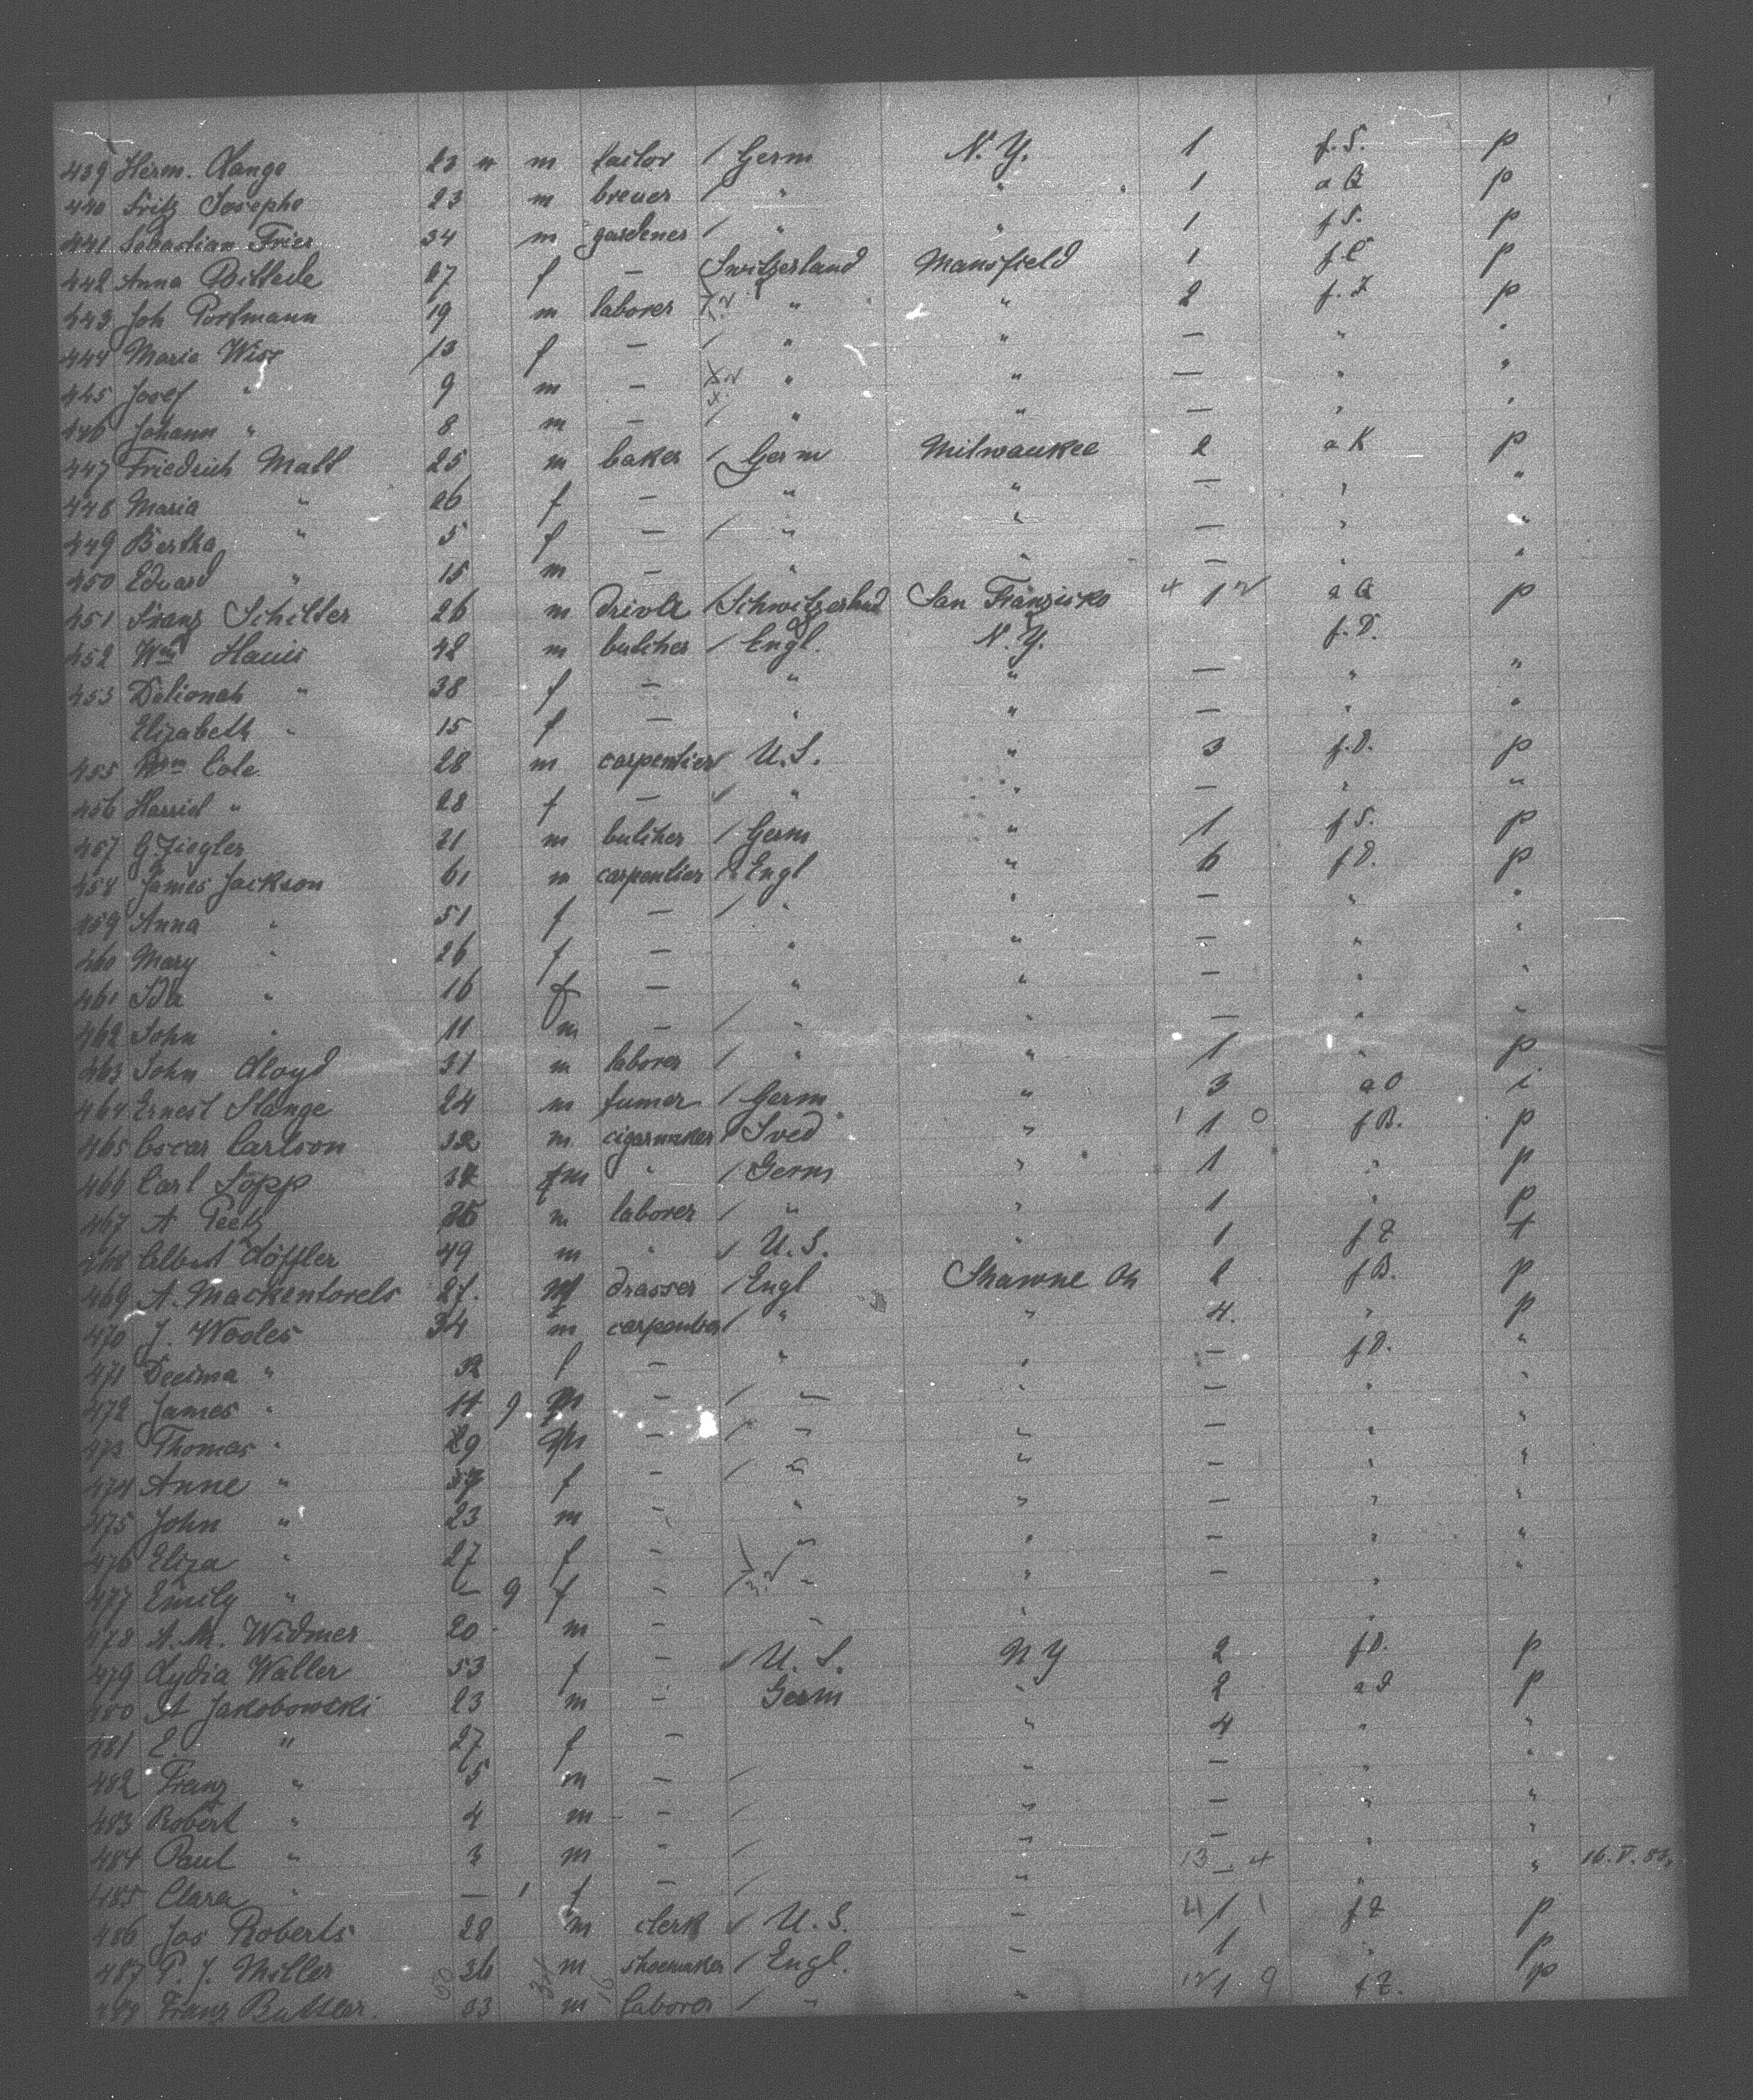 439 Herm. Lange 23 m tailor / Germ N. Y. 1 f. S. p
440 Fritz Josephs 23 m brewer / " " 1 a Q p
441 Sebastian Frier 34 m gardener / " " 1 f S. p
442 Anna 27 f — Switzerland Mansfield 1 p
443 Joh Portmann 19 m laborer " " 2 p
444 Maria Wiss 13 f — / " " — " "
445 Josef " 9 m — " " — " "
446 Johann " 8 m — / " " — " "
447 Friedrich Matt 25 m baker / Germ Milwaukee 2 a K p
448 Maria " 26 f — " " — " "
449 Bertha " 5 f — / " " — " "
450 Eduard " 15 m — " " — " "
451 Franz Schilter 26 m / Schwitzerland San Franzisko 1 a Q p
452 Wm 42 m butcher / Engl. N. Y. f. D.
453 " 38 f — " " — " "
Elizabeth " 15 f — " " — " "
455 Wm Cole 28 m carpentier U. S. " 3 f. D. p
456 Harriet " 28 f — " " — " "
457 G. Ziegler 21 m butcher / Germ " 1 f S. p
458 James Jackson 61 m carpentier / Engl " 6 f D. p
459 Anna " 51 f — / " " — " "
460 Mary " 26 f — " " — " "
461 Ida " 16 f — " " — " "
462 John " 11 m — / " " — " "
463 John Lloyd 31 m laborer / " " 1 " p
464 Ernest Stange 24 m / Germ " 3 a O i
465 Oscar Carlson 32 m cigarmaker / Sved " 1 f B. p
466 Carl Topp m " / Germ " 1 " p
467 A Peetz m laborer / " " 1 " p
468 Albert Löffler 49 m " U. S. " 1 f Z t
469 A. 27. m drasser / Engl Shawne Oh 2 f B. p
470 J. Wooles 34 m carpentier / " " 4. " p
471 Decima " 32 f — " " — f D. "
472 James " 9 m — / " " — " "
473 Thomas " 29 m — / " " — " "
474 Anne " f — / " " — " "
475 John " 23 m — " " — " "
476 Eliza " 27 f — " " — " "
477 Emily " — 9 f — " " — " "
478 A. M. Widmer 20 m — " " "
479 Lydia Waller 53 f — U. S. N Y 2 f D. p
480 A Jakobowski 23 m — Germ " 2 p
481 E. " 27 f — " 4 " "
482 Franz " 5 m — / " — " "
483 Robert " 4 m — / " — " "
484 Paul " 3 m — / " — " "
485 Clara " — 1 f — / " — " "
486 Jos Roberts 28 m clerk U. S. " 1 f Z p
487 P. J. Miller 36 m shoemaker / Engl. " 1 " p
488 Franz 33 m laborer / " " 1 f Z. p